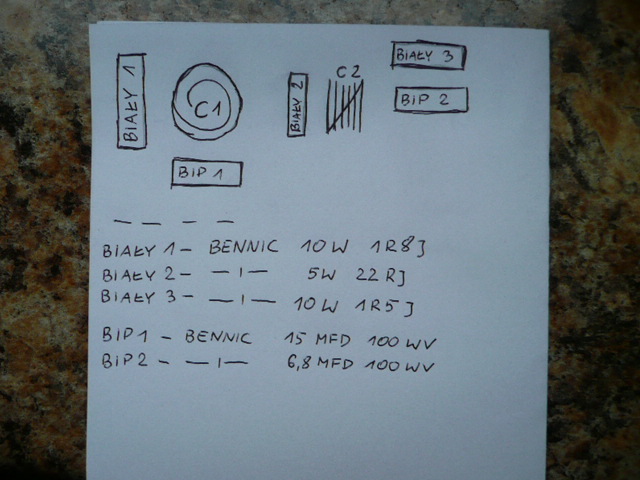 BIAŁY 1
C1
BIP 1
BIAŁY 2
C 2
BIAŁY 3
BIP 2
BIAŁY 1 - BENNIC 10W 1R8J
BIAŁY 2 - —ı— 5W 22RJ
BIAŁY 3 - —ı— 10W 1R5J
BIP 1 - BENNIC 15 MFD 100 WV
BIP 2 - —ı— 6,8 MFD 100 WV